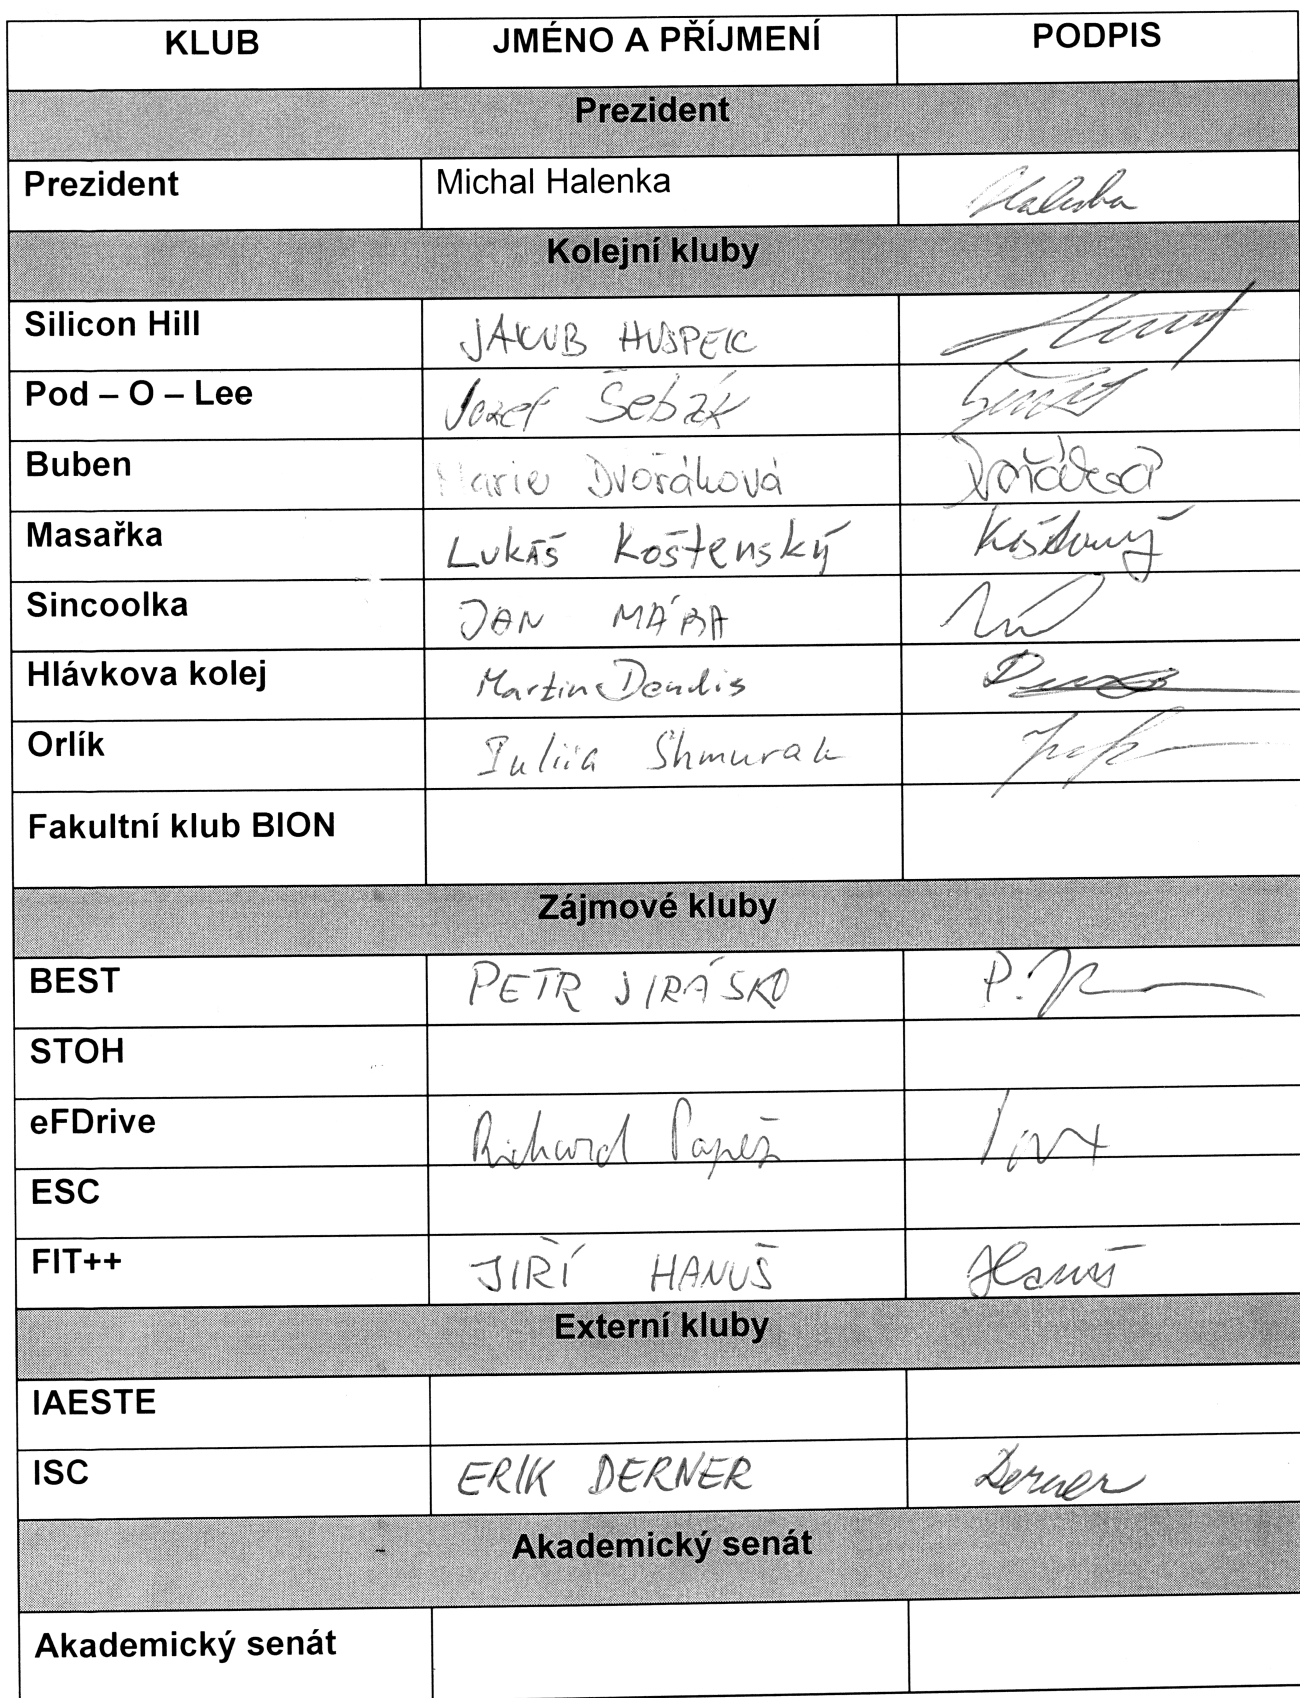 KLUB JMÉNO A PŘÍJMENÍ PODPIS
Prezident
Prezident Michal Halenka Halenka
Kolejní kluby
Silicon Hill JAKUB HUSPEK
Pod – O – Lee Jozef Šebák
Buben Marie Dvořáková Dvořáková
Masařka Lukáš Koštenský
Sincoolka JAN MÁRA
Hlávkova kolej Martin Dendis
Orlík Iuliia Shmurak
Fakultní klub BION
Zájmové kluby
BEST PETR JIRÁSKO
STOH
eFDrive Richard Papež
ESC
FIT++ JIŘÍ HANUŠ Hanuš
Externí kluby
IAESTE
ISC ERIK DERNER Derner
Akademický senát
Akademický senát